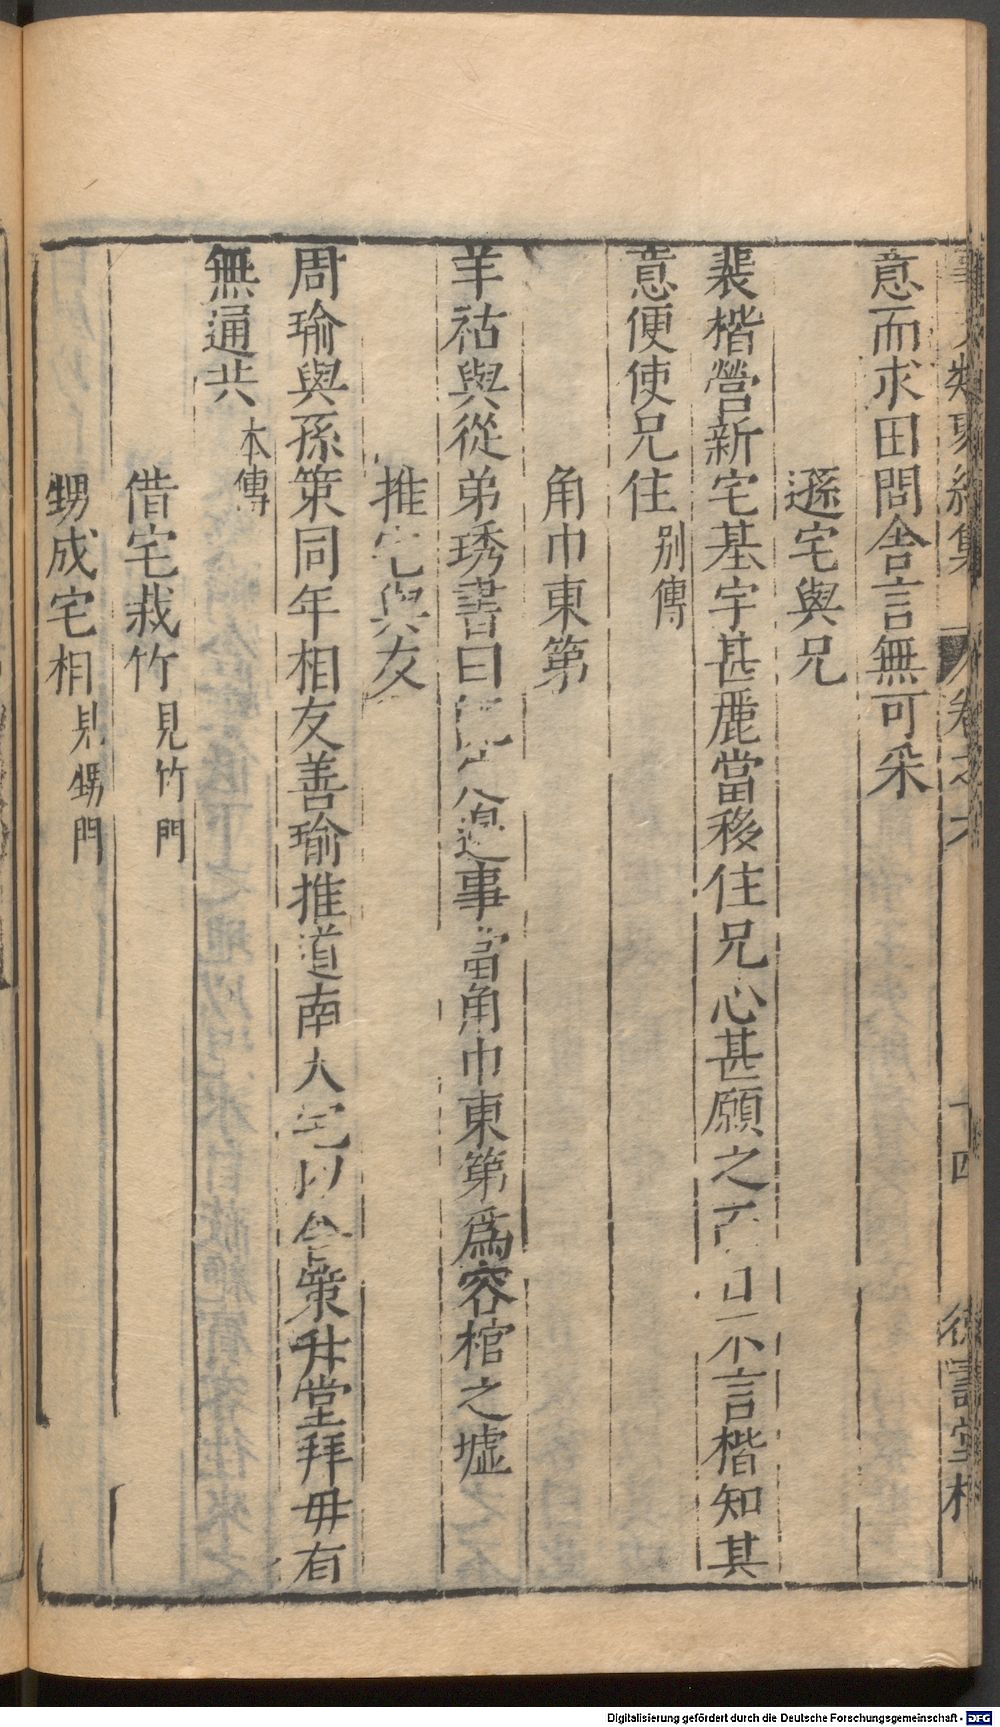 意而求田問舍言無可采
遜宅與兄
裴楷營新宅基宇甚麗當移住兄心甚願之而口不言楷知其
意便使兄住 別傳
角巾東第
羊祜與從弟琇書曰 邊事當角巾東第為容棺之墟
推宅與友
周瑜與孫策同年相友善瑜推道南大宅以舍策升堂拜母有
無通共 本傳
借宅栽竹 見竹門
甥成宅相 見甥門
類聚 集 卷之六 十四 德壽堂梓
Digitalisierung gefördert durch die Deutsche Forschungsgemeinschaft - DFG